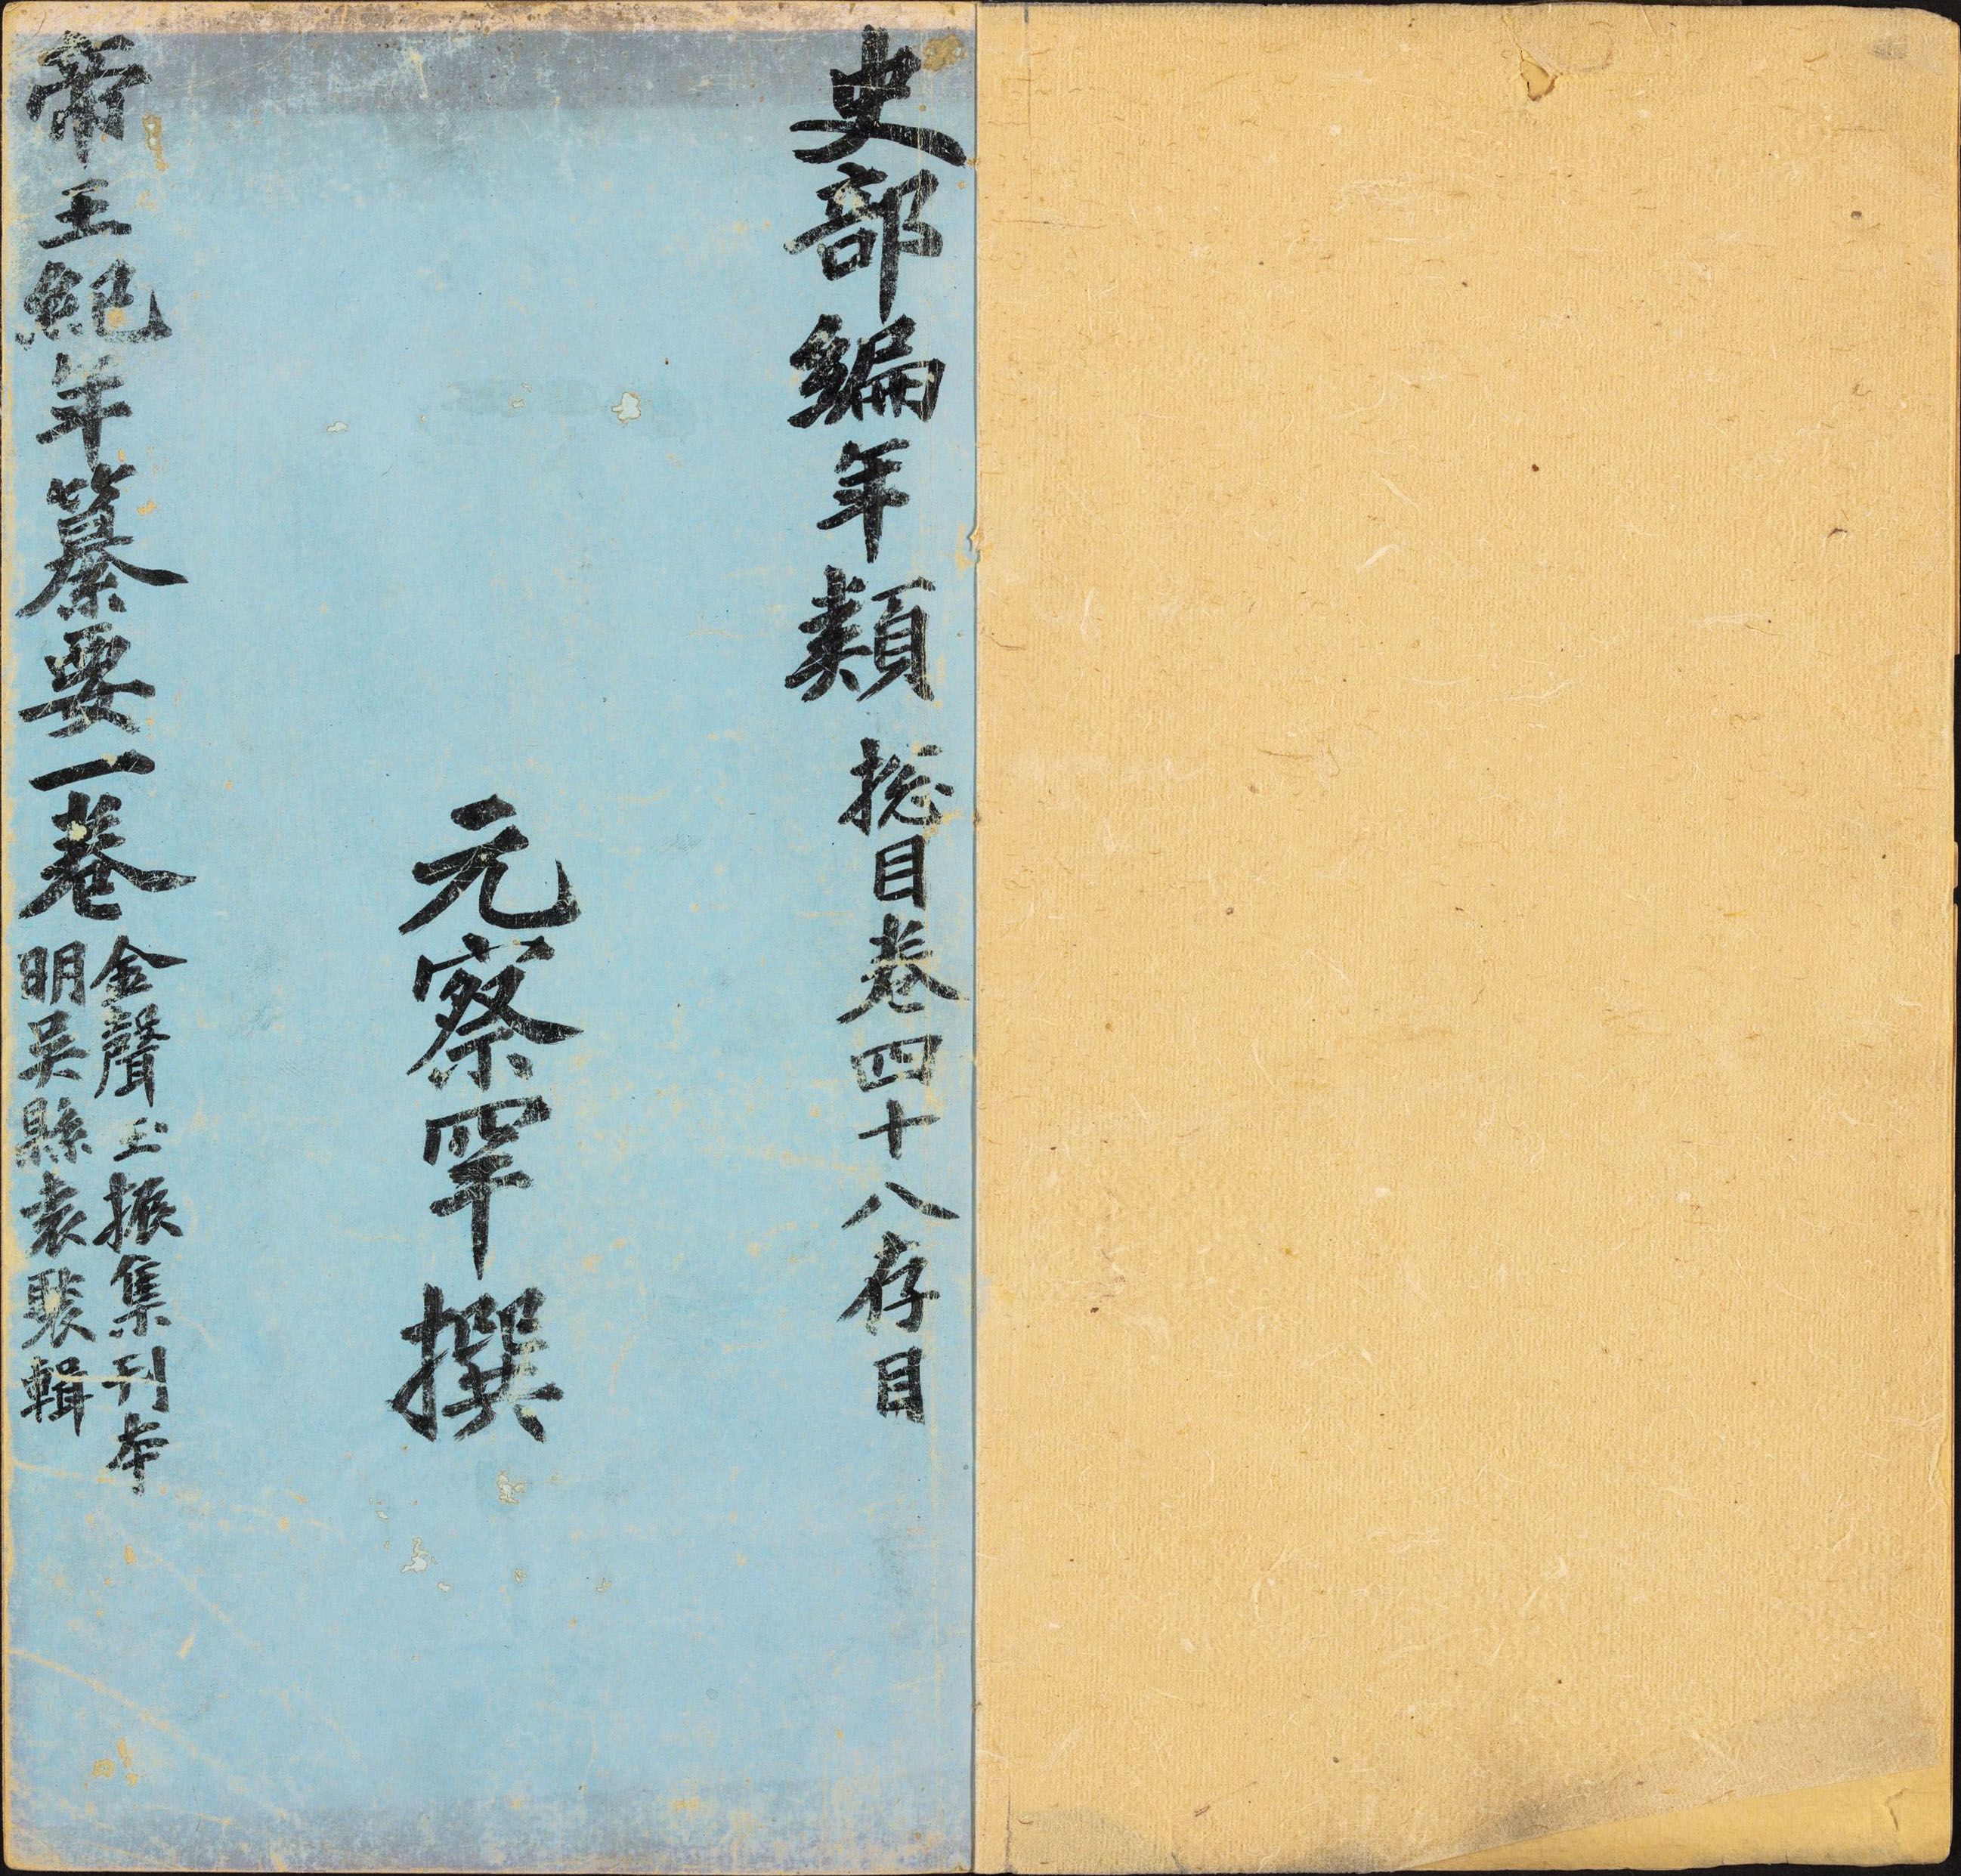 史部編年類 捴目卷四十八存目
元察罕撰
帝王紀年纂要一卷
金聲玉振集刊本
明吳縣袁褧輯